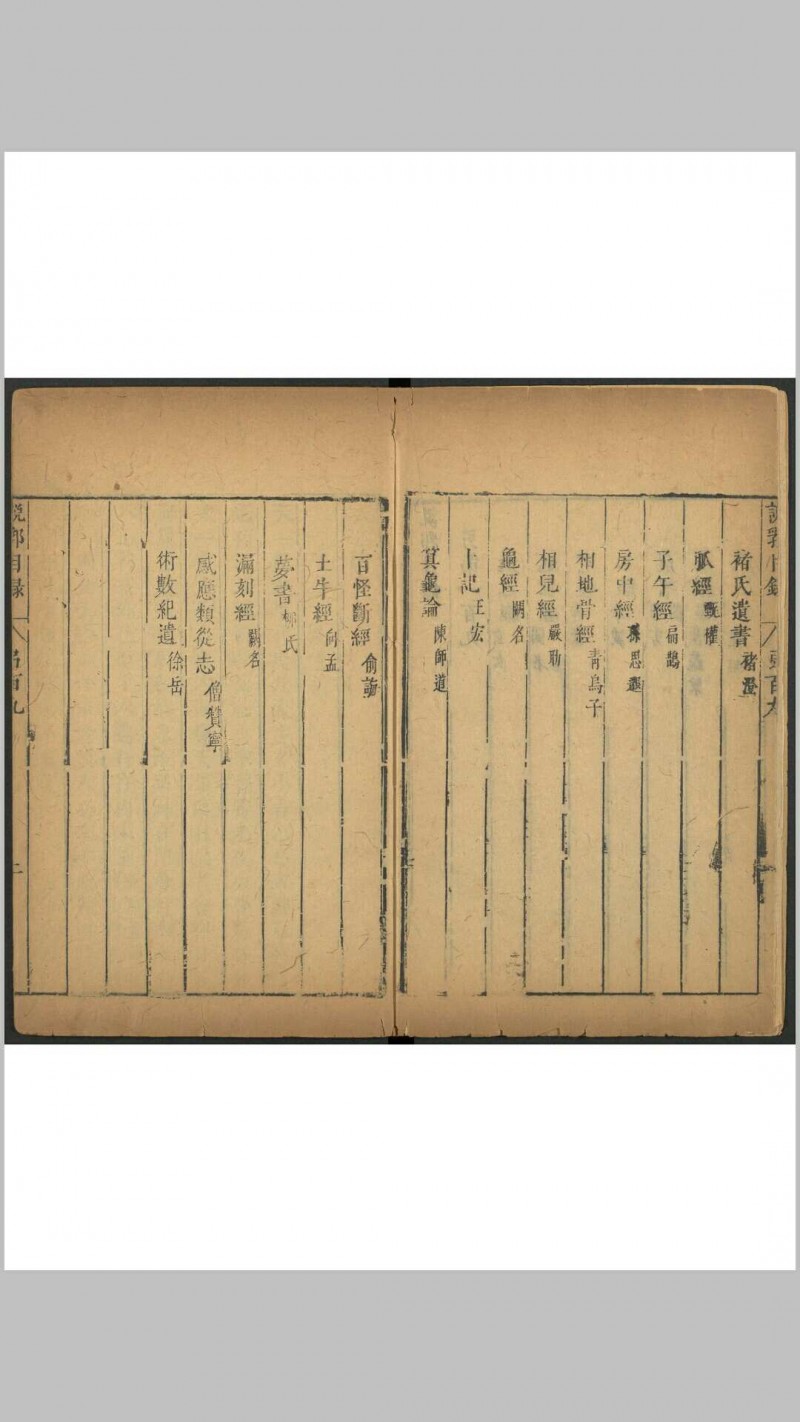 褚氏遺書 褚澄
脈經 甄權
子午經 扁鵲
房中經 孫思邈
相地骨經 青烏子
相兒經 嚴助
龜經 闕名
卜記 王宏
筮龜論 陳師道
百怪斷經 俞誨
土牛經 向孟
夢書 柳氏
漏刻經 闕名
感應類從志 僧贊寧
術數紀遺 徐岳
說郛目錄